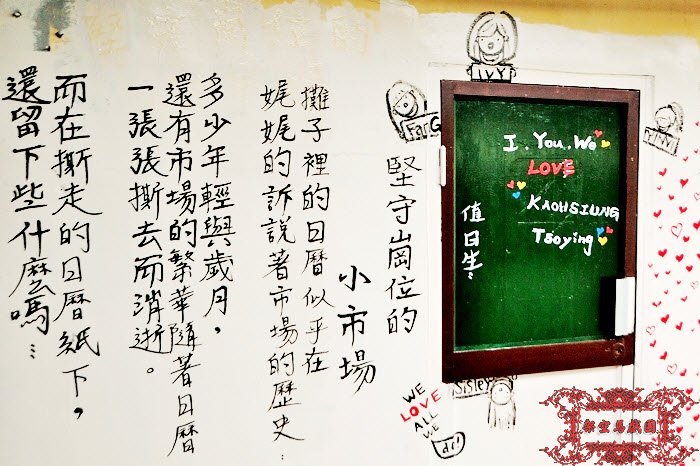 堅守崗位的
小市場
攤子裡的日曆似乎在
娓娓的訴說著市場的歷史…
多少年輕與歲月，
還有市場的繁華隨著日曆
一張張撕去而消逝。
而在撕走的日曆紙下，
還留下些什麼嗎…
IVY
I. You. We
LOVE
KAOHSIUNG
Tsoying
值日生:
Sisley
WE
LOVE
ALL
WE
架空馬戲團